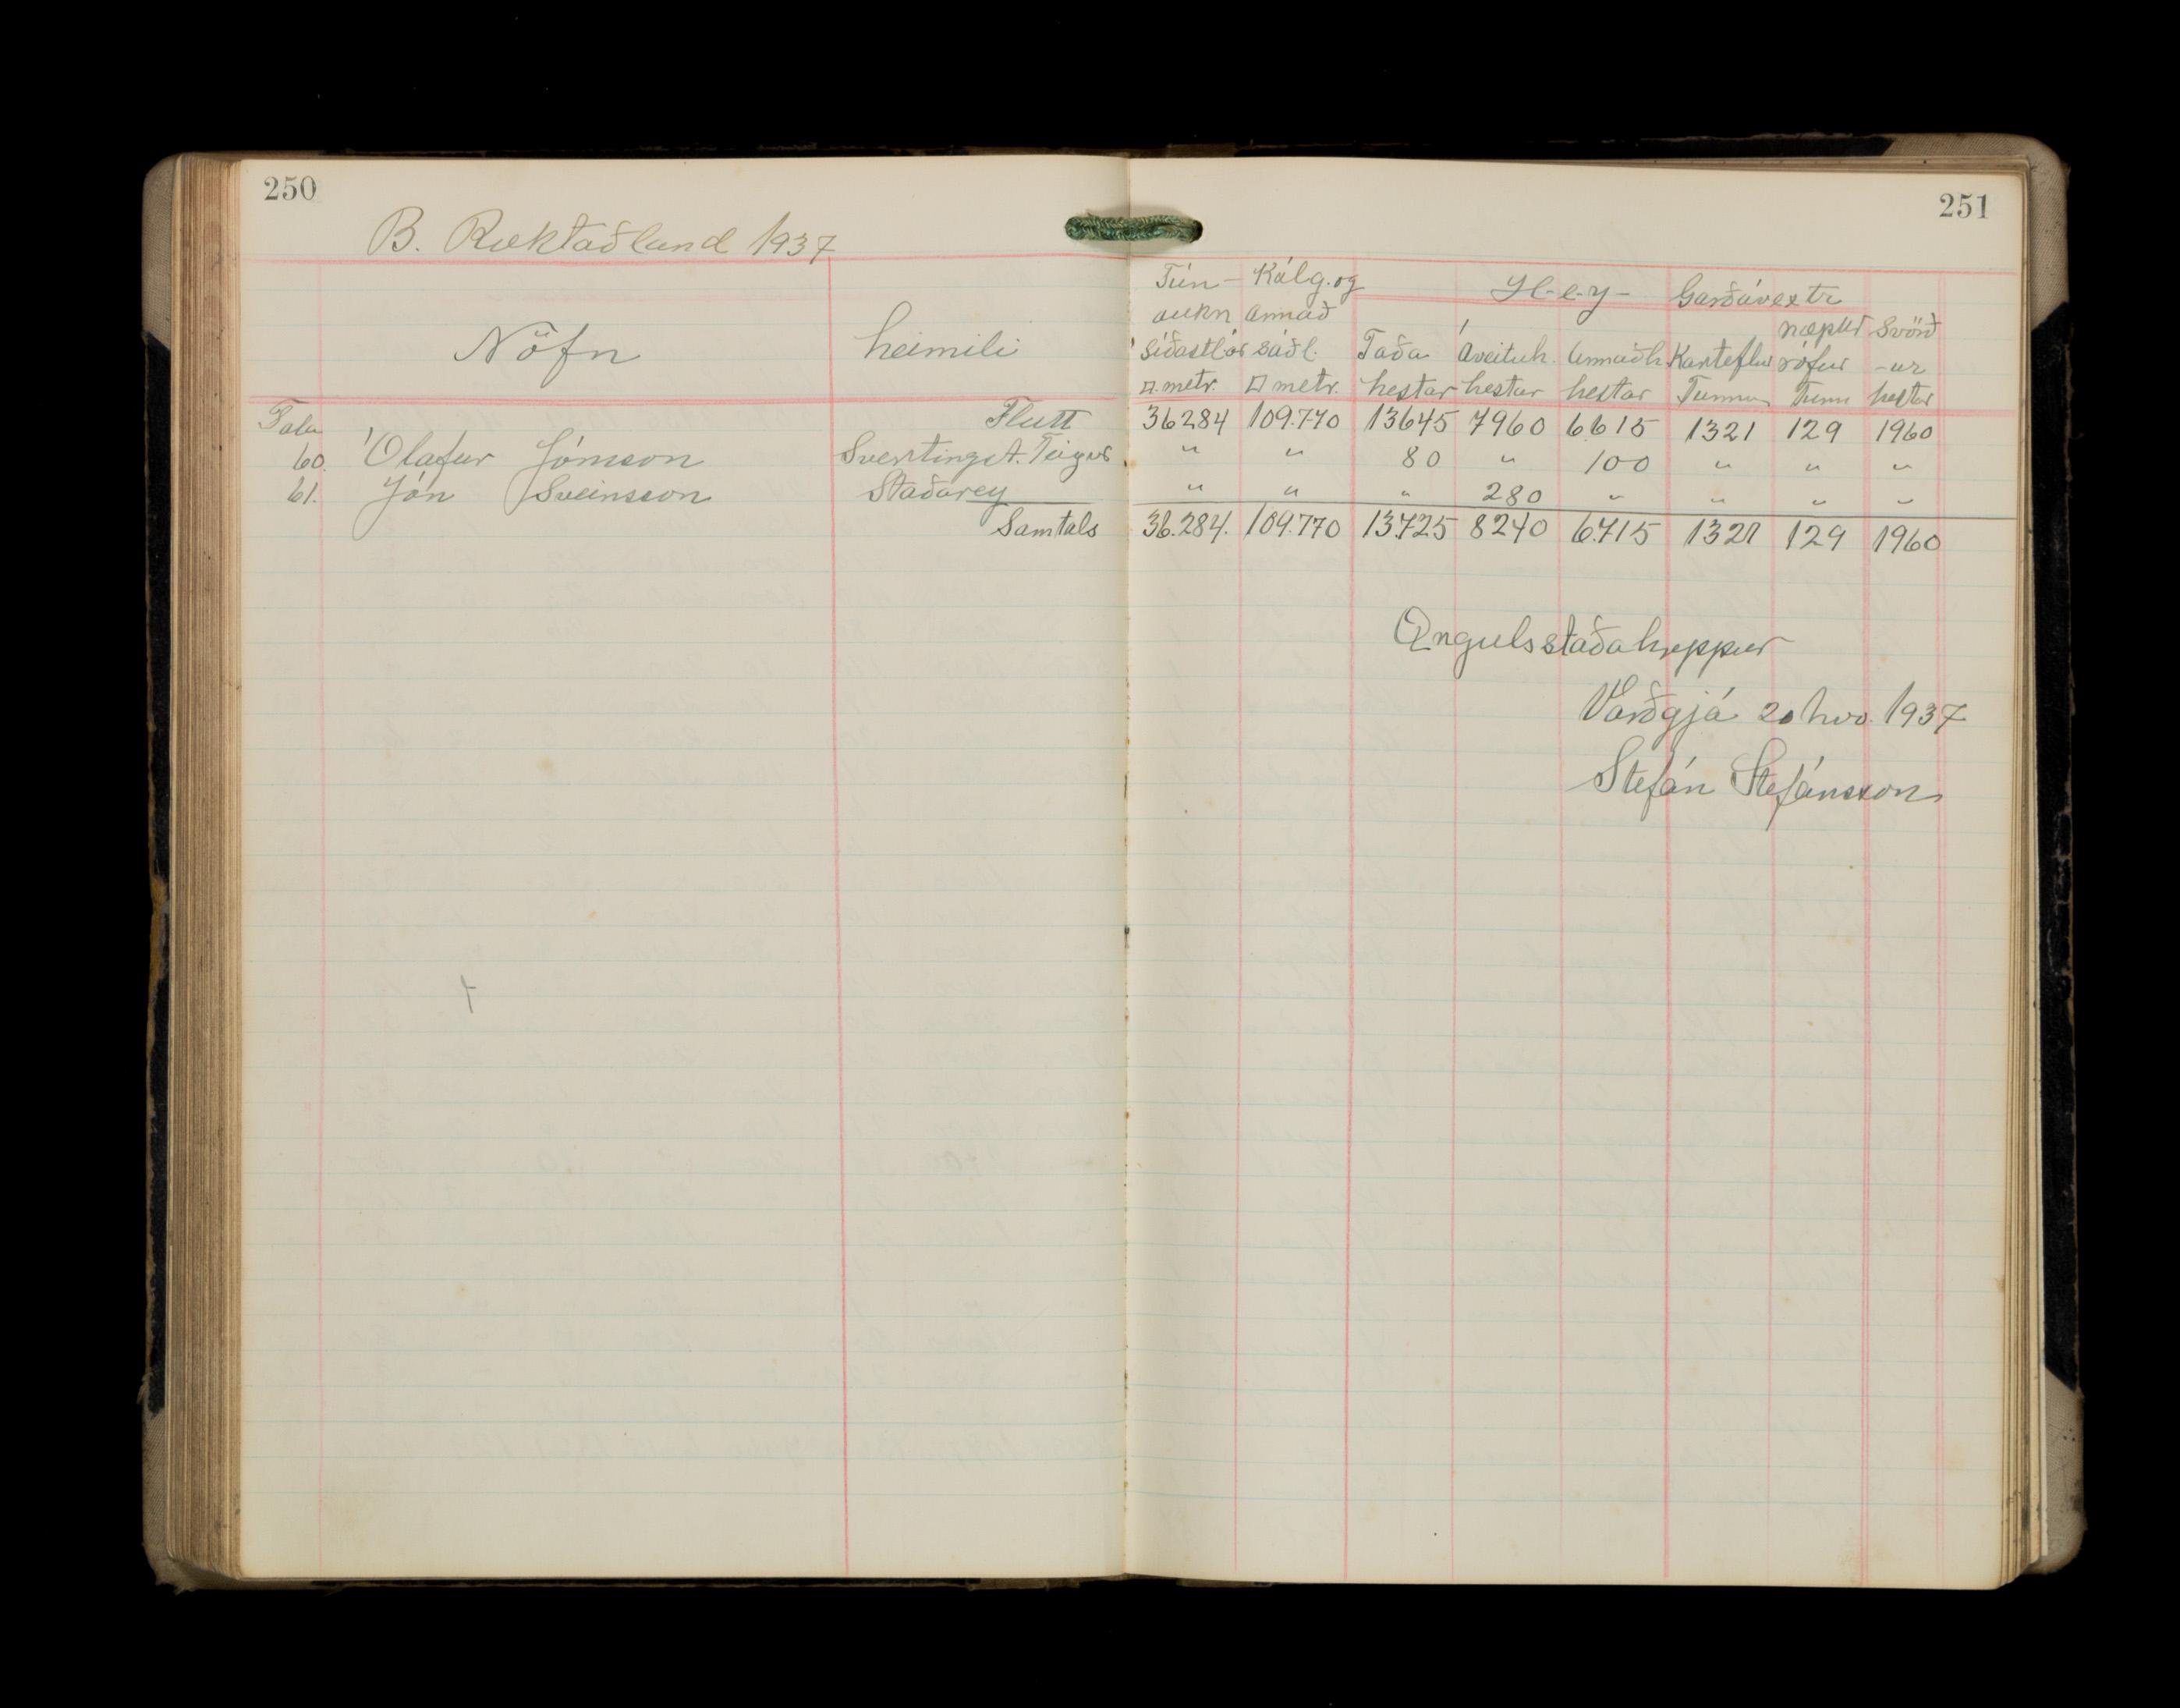 250
251
B. Ræktaðland 1937
Nöfn heimili
Tún- Kálg. og H-e-y- Garðávextr
aukn annað næpur Svörð
síðastl.ár sáðl. Taða Áveituh. Annaðh. Karteflur rófur -ur
□.metr. □ metr. hestar hestar hestar Tunnur Tunn hestar
Tala Flutt 36284 109.770 13645 7960 6615 1321 129 1960
60. Ólafur Jónsson Svertingst. Teigur " " 80 " 100 " " "
61. Jón Sveinsson Staðarey " " " 280 " " " "
Samtals 36.284. 109.770 13.725 8240 6.715 1321 129 1960
Öngulsstaðahreppur
Varðgjá 20 nvo. 1937
Stefán Stefánsson